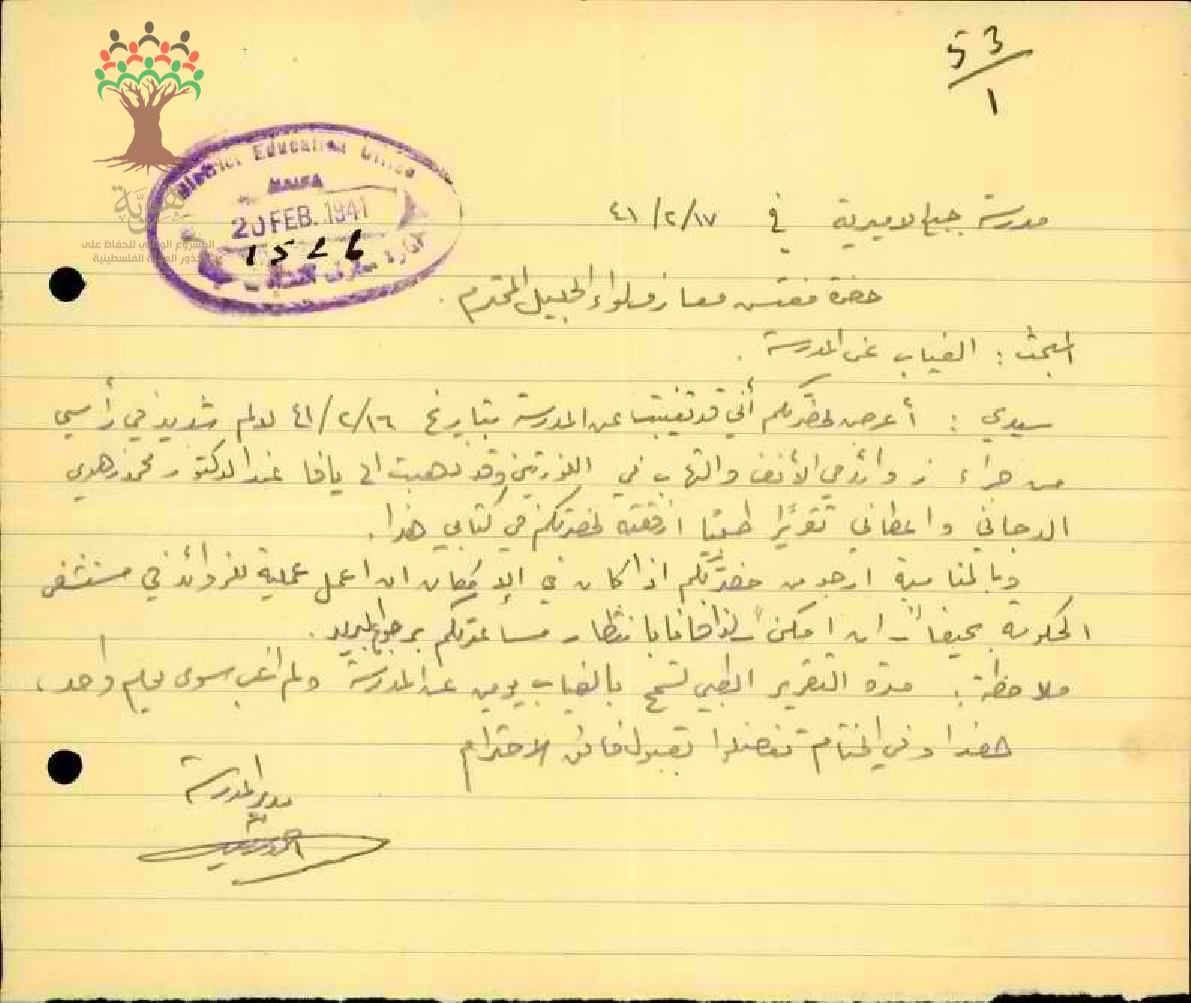 53
1
هوية
المشروع الوطني للحفاظ على
جذور العائلة الفلسطينية
District Education Office
HAIFA
20 FEB. 1941
1526
مدرسة جبع الاميرية في ٤١/٢/١٧
حضرة مفتش معارف لواء الجليل المحترم .
المبحث : الغياب عن المدرسة .
سيدي : أعرض لحضرتكم أني قد تغيبت عن المدرسة بتاريخ ٤١/٢/١٦ لالم شديد في رأسي
من جراء زوائد في الأنف والتهاب في اللوزتين وقد ذهبت الى يافا عند الدكتور محمود زهدي
الدجاني واعطاني تقريرا طبيا ارفقته لحضرتكم في كتابي هذا .
وبالمناسبة ارجو من حضرتكم اذا كان في الإمكان ان اعمل عملية للزوائد في مستشفى
الحكومة بحيفا ان امكن لذا فانا بانتظار مساعدتكم برجوع البريد .
ملاحظة : مدة التقرير الطبي تسمح بالغياب يومين عن المدرسة ولم اتغيب سوى يوم واحد ،
هذا وفي الختام تفضلوا بقبول فائق الاحترام
مدير المدرسة